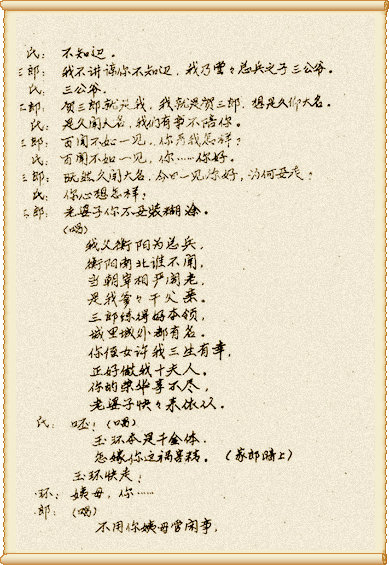 氏：不知边。
三郎：我不讲谅你不知边，我乃堂々总兵之子三公爷。
氏：三公爷。
三郎：贺三郎就是我，我就是贺三郎，想是久仰大名。
氏：是久闻大名，我们有事不陪你。
三郎：百闻不如一见，你看我怎样？
氏：百闻不如一见，你……你好。
三郎：既然久闻大名，今日一见你好，为何要走？
氏：你心想怎样？
三郎：老婆子你不要装糊涂。
（唱）
我父衡阳为总兵，
衡阳南北谁不闻，
当朝宰相严阁老，
是我爹々干父亲。
三郎练得好本领，
城里城外都有名。
你侄女许我三生有幸，
正好做我十夫人。
你的荣华享不尽，
老婆子快々来依从。
氏：呸！（唱）
玉环本是千金体，
怎嫁你这祸害精。（家郎暗上）
玉环快走！
环：姨母，你……
郎：（唱）
不用你姨母管闲事，